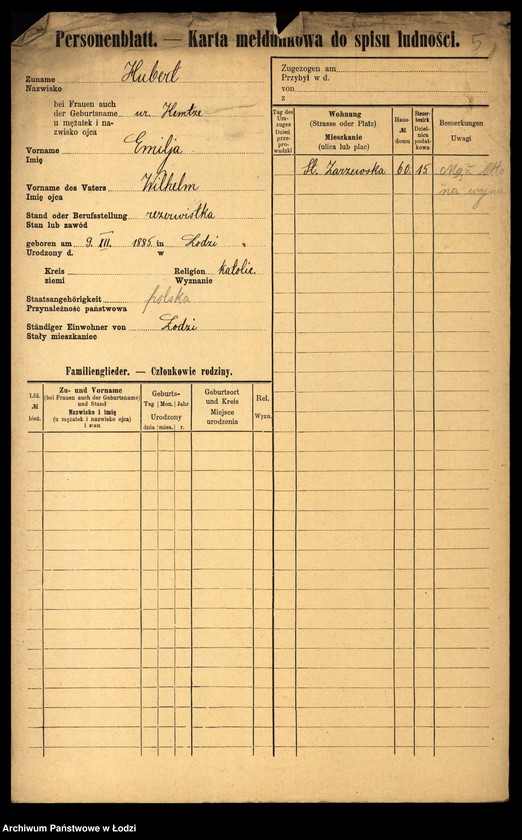 Personenblatt. — Karta meldunkowa do spisu ludności. 5
Zuname Hubert
Nazwisko
bei Frauen auch
der Geburtsname ur. Hentze
u mężatek i na-
zwisko ojca
Vorname Emilja
Imię
Vorname des Vaters Wilhelm
Imię ojca
Stand oder Berufsstellung rezerwistka
Stan lub zawód
geboren am 9. III. 1885 in Łodzi
Urodzony d. w
Kreis Religion katolic.
ziemi Wyznanie
Staatsangehörigkeit polska
Przynależność państwowa
Ständiger Einwohner von Łodzi
Stały mieszkaniec
Familienglieder. — Członkowie rodziny.
Lfd. № bież.
Zu- und Vorname
(bei Frauen auch der Geburtsname)
und Stand
Nazwisko i imię
(u mężatek i nazwisko ojca)
i stan
Geburts-
Tag Mon. Jahr
Urodzony
dnia mies. r.
Geburtsort
und Kreis
Miejsce
urodzenia
Rel.
Wyzn.
Zugezogen am
Przybył w d.
von
z
Tag des
Um-
zuges
Dzień
prze-
prowa-
dzki
Wohnung
(Strasse oder Platz)
Mieszkanie
(ulica lub plac)
Haus-
№
domu
Steuer-
bezirk
Dziel-
nica
podat-
kowa
Bemerkungen
Uwagi
St. Zarzewska 60. 15
na wojnie
Archiwum Państwowe w Łodzi